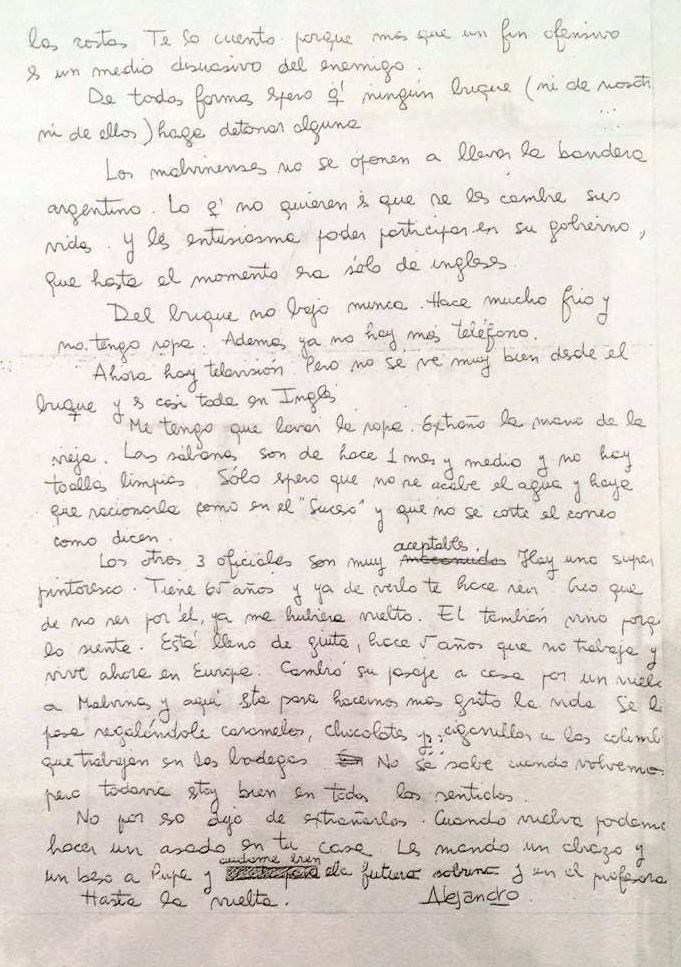 las costas Te lo cuento porque mas que un fin ofensivo
es un medio disuasivo del enemigo.
De todas formas espero q' ningún buque (ni de nosot
ni de ellos) haga detonar alguna
Los malvinenses no se oponen a llevar la bandera
argentina. Lo q' no quieren es que se les cambie sus
vidas. Y les entusiasma poder participar en su gobierno,
que hasta el momento era sólo de ingleses.
Del buque no bajo nunca. Hace mucho frio y
no tengo ropa. Ademas ya no hay más teléfono.
Ahora hay televisión Pero no se ve muy bien desde el
buque y es casi toda en Inglés
Me tengo que lavar la ropa. Extraño la mano de la
vieja. Las sábanas son de hace 1 mes y medio y no hay
toallas limpias Sólo espero que no se acabe el agua y haya
que racionarla como en el "Suceso" y que no se corte el correo
como dicen.
Los otros 3 oficiales son muy aceptables. Hay uno super
pintoresco. Tiene 65 años y ya de verlo te hace reir Creo que
de no ser por él, ya me hubiera vuelto. El también vino porq
lo siente. Está lleno de guita, hace 5 años que no trabaja y
vive ahora en Europa. Cambió su pasaje a casa por un vuelo
a Malvinas y aquí esta para hacernos mas grato la vida Se la
pasa regalándole caramelos, chocolates y cigarrillos a los colimb
que trabajan en las bodegas No se sabe cuando volvemos
pero todavia estoy bien en todos los sentidos.
No por eso dejo de extrañarlos. Cuando vuelva podemos
hacer un asado en tu casa Les mando un abrazo y
un beso a Pupe y cuidame bien a la futura sobrina y en el profesora
Hasta la vuelta. Alejandro.